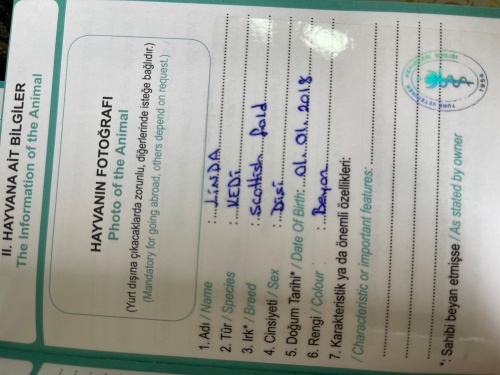 II. HAYVANA AİT BİLGİLER
The Information of the Animal
HAYVANIN FOTOĞRAFI
Photo of the Animal
(Yurt dışına çıkacaklarda zorunlu, diğerlerinde isteğe bağlıdır.)
(Mandatory for going abroad, others depend on request.)
1. Adı / Name : LİNDA
2. Tür / Species : KEDİ
3. Irk* / Breed : Scottish fold
4. Cinsiyeti / Sex : Dişi
5. Doğum Tarihi* / Date Of Birth: 01.01.2018
6. Rengi / Colour : Beyaz
7. Karakteristik ya da önemli özellikleri:
/ Characteristic or important features:
*: Sahibi beyan etmişse / As stated by owner
1954